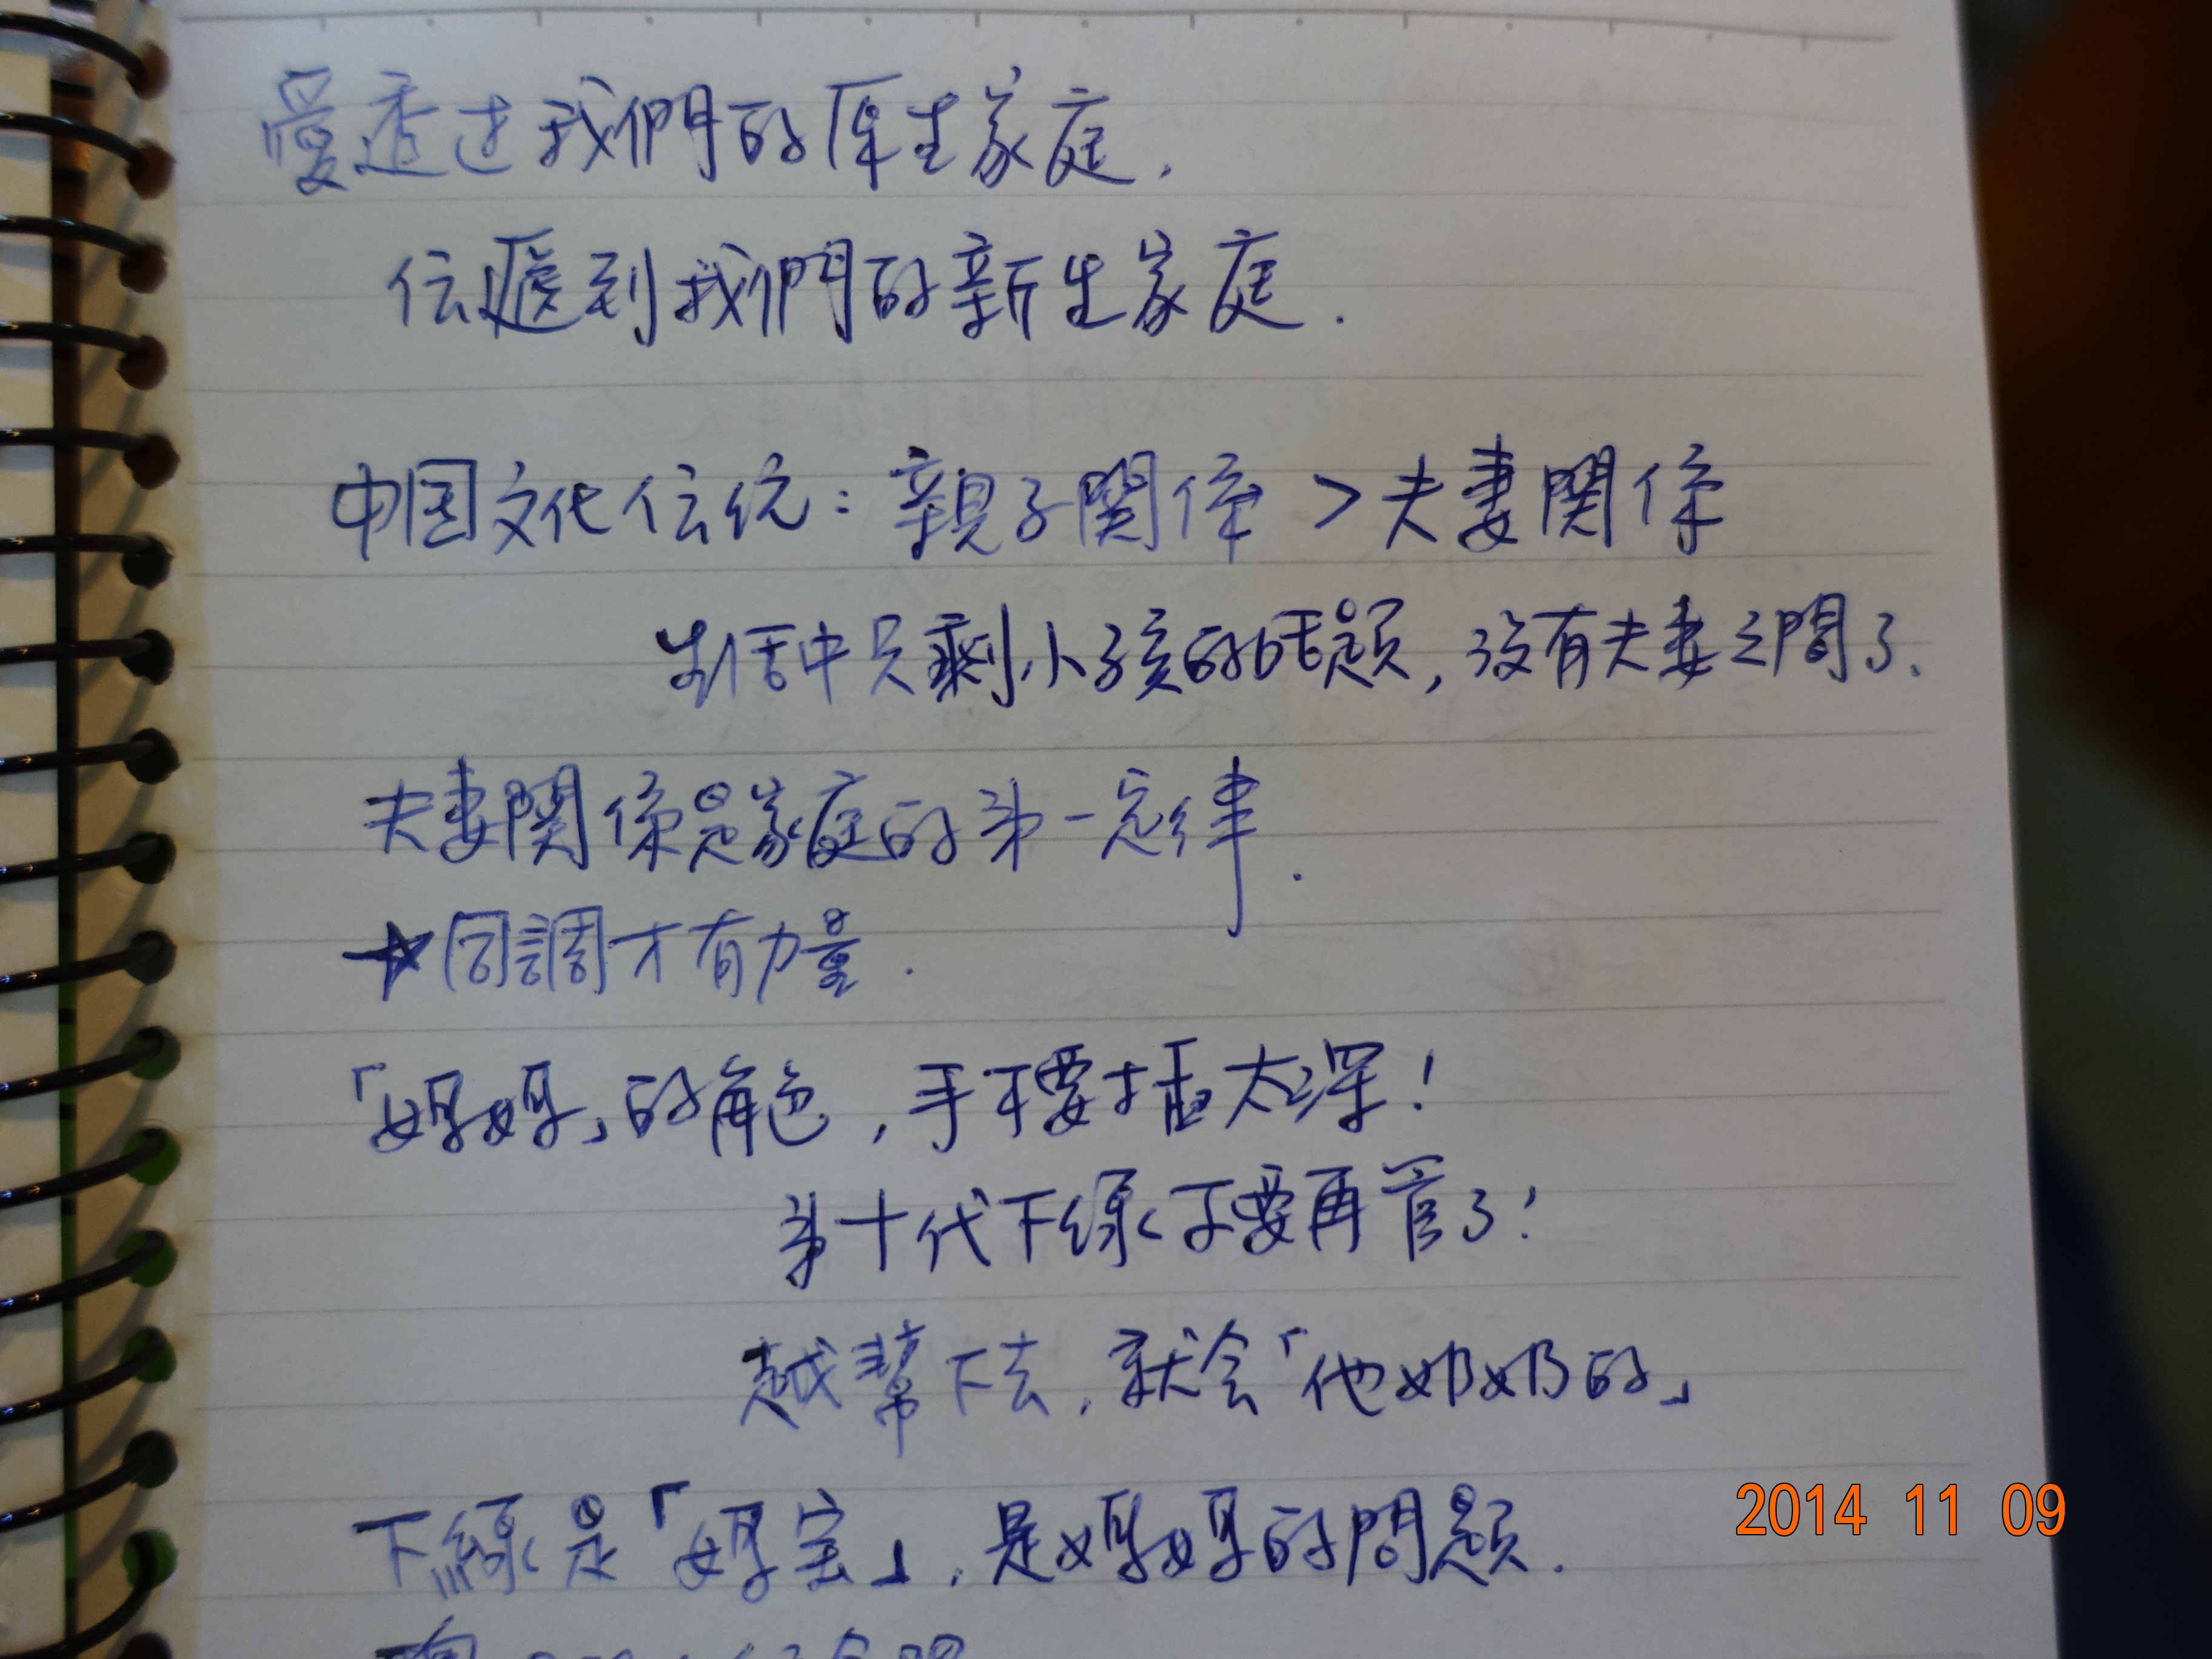 愛透过我們的原生家庭.
伝遞到我們的新生家庭.
中国文化伝统：親子関係 > 夫妻関係
生活中只剩小孩的話題，沒有夫妻之間了.
夫妻関係是家庭的第一定律.
★同調才有力量.
「媽媽」的角色，手不要插太深！
第十代下線不要再管了！
越幫下去，就会「他奶奶的」
下線是「媽宝」，是媽媽的問題.
2014 11 09